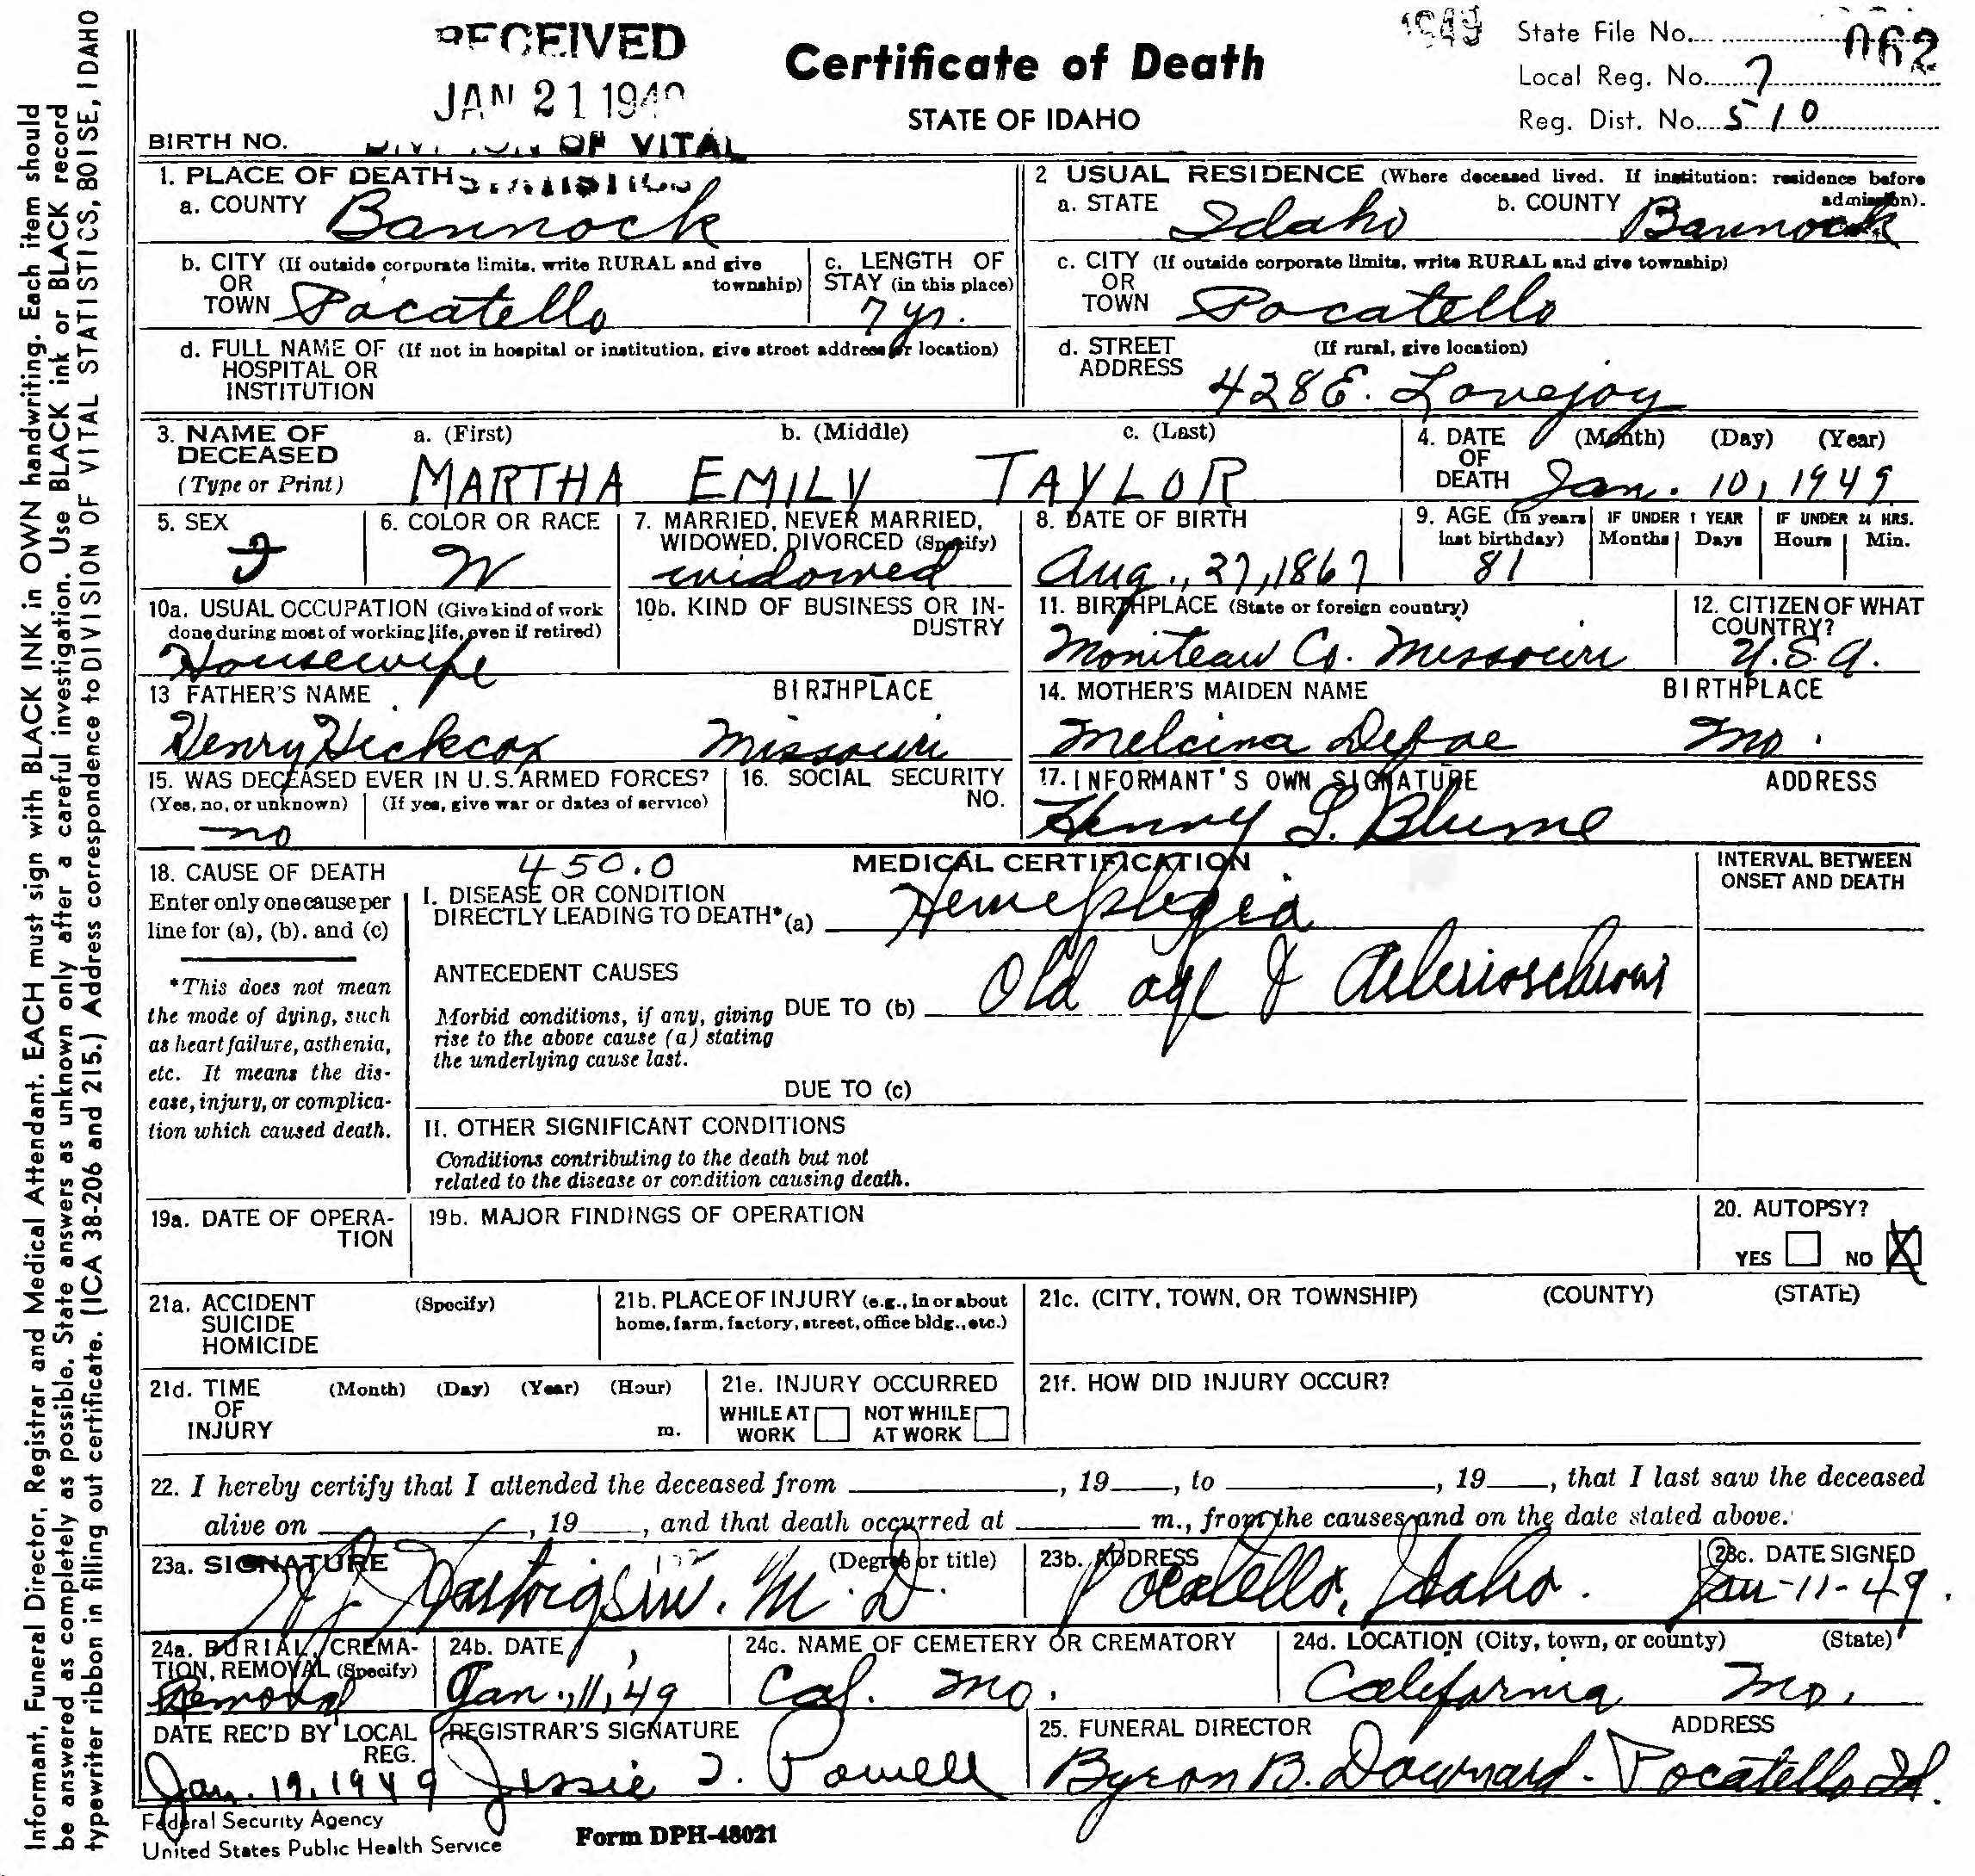 RECEIVED
JAN 21 1949
DIVISION OF VITAL
STATISTICS
1949
Certificate of Death
STATE OF IDAHO
State File No. 062
Local Reg. No. 7
Reg. Dist. No. 510
BIRTH NO.
1. PLACE OF DEATH
a. COUNTY Bannock
b. CITY (If outside corporate limits, write RURAL and give township)
OR
TOWN Pocatello
c. LENGTH OF STAY (in this place)
7 yr.
d. FULL NAME OF HOSPITAL OR INSTITUTION (If not in hospital or institution, give street address or location)
2 USUAL RESIDENCE (Where deceased lived. If institution: residence before admission).
a. STATE Idaho b. COUNTY Bannock
c. CITY (If outside corporate limits, write RURAL and give township)
OR
TOWN Pocatello
d. STREET ADDRESS (If rural, give location)
428 E. Lovejoy
3. NAME OF DECEASED (Type or Print)
a. (First) b. (Middle) c. (Last)
MARTHA EMILY TAYLOR
4. DATE OF DEATH (Month) (Day) (Year)
Jan. 10, 1949
5. SEX
F
6. COLOR OR RACE
W
7. MARRIED, NEVER MARRIED, WIDOWED, DIVORCED (Specify)
widowed
8. DATE OF BIRTH
Aug., 27, 1867
9. AGE (In years last birthday)
81
IF UNDER 1 YEAR
Months Days
IF UNDER 24 HRS.
Hours Min.
10a. USUAL OCCUPATION (Give kind of work done during most of working life, even if retired)
Housewife
10b. KIND OF BUSINESS OR INDUSTRY
11. BIRTHPLACE (State or foreign country)
Moniteau Co. Missouri
12. CITIZEN OF WHAT COUNTRY?
U.S.A.
13 FATHER'S NAME BIRTHPLACE
Henry Hickcox Missouri
14. MOTHER'S MAIDEN NAME BIRTHPLACE
Melcina Defoe Mo.
15. WAS DECEASED EVER IN U.S. ARMED FORCES?
(Yes, no, or unknown) (If yes, give war or dates of service)
no
16. SOCIAL SECURITY NO.
17. INFORMANT'S OWN SIGNATURE ADDRESS
Henry L. Blume
18. CAUSE OF DEATH
Enter only one cause per line for (a), (b). and (c)
*This does not mean the mode of dying, such as heart failure, asthenia, etc. It means the disease, injury, or complication which caused death.
450.0
MEDICAL CERTIFICATION
INTERVAL BETWEEN ONSET AND DEATH
I. DISEASE OR CONDITION
DIRECTLY LEADING TO DEATH* (a) Hemeplegia
ANTECEDENT CAUSES
Morbid conditions, if any, giving rise to the above cause (a) stating the underlying cause last.
DUE TO (b) Old age &
DUE TO (c)
II. OTHER SIGNIFICANT CONDITIONS
Conditions contributing to the death but not related to the disease or condition causing death.
19a. DATE OF OPERATION
19b. MAJOR FINDINGS OF OPERATION
20. AUTOPSY?
YES NO X
21a. ACCIDENT (Specify)
SUICIDE
HOMICIDE
21b. PLACE OF INJURY (e.g., in or about home, farm, factory, street, office bldg., etc.)
21c. (CITY, TOWN, OR TOWNSHIP) (COUNTY) (STATE)
21d. TIME OF INJURY (Month) (Day) (Year) (Hour) m.
21e. INJURY OCCURRED
WHILE AT WORK NOT WHILE AT WORK
21f. HOW DID INJURY OCCUR?
22. I hereby certify that I attended the deceased from , 19 , to , 19 , that I last saw the deceased
alive on , 19 , and that death occurred at m., from the causes and on the date stated above.
23a. SIGNATURE (Degree or title)
M.D.
23b. ADDRESS
Pocatello, Idaho.
23c. DATE SIGNED
Jan-11-49.
24a. BURIAL, CREMATION, REMOVAL (Specify)
Removal
24b. DATE
Jan., 11, 49
24c. NAME OF CEMETERY OR CREMATORY
Cal. Mo.
24d. LOCATION (City, town, or county) (State)
California Mo.
DATE REC'D BY LOCAL REG.
Jan. 19, 1949
REGISTRAR'S SIGNATURE
Jessie I. Powell
25. FUNERAL DIRECTOR ADDRESS
Byron B. Downard - Pocatello Id.
Federal Security Agency
United States Public Health Service
Form DPH-48021
Informant, Funeral Director, Registrar and Medical Attendant. EACH must sign with BLACK INK in OWN handwriting. Each item should
be answered as completely as possible. State answers as unknown only after a careful investigation. Use BLACK ink or BLACK record
typewriter ribbon in filling out certificate. (ICA 38-206 and 215.) Address correspondence to DIVISION OF VITAL STATISTICS, BOISE, IDAHO